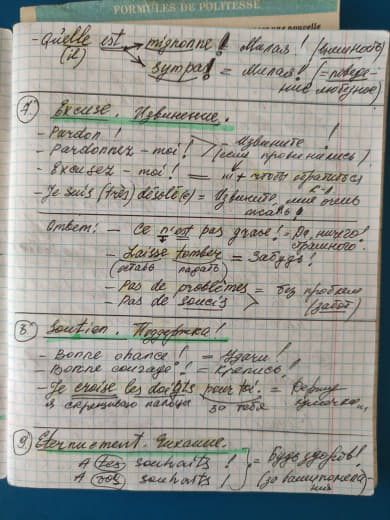 FORMULES DE POLITESSE
- Qu'elle est → mignonne! Милая! (внешность)
(il) → sympa! = Милая! (=поведе-
ние любезное)
7. Excuse. Извинение.
- Pardon!
- Pardonnez-moi! - Извините!
(если провинились)
- Excusez-moi! = чтобы обратиться
- Je suis (très) désolé(e) = Извините, мне очень
жаль!
Ответ: - Ce n'est pas grave! = Да, ничего
страшного.
- Laisse tomber = Забудь!
(оставь падать)
- Pas de problèmes = без проблем
- Pas de soucis (забот)
8. Soutien. Поддержка!
- Bonne chance! = Удачи!
- Bonne courage! = Крепись!
- Je croise les doigts pour toi. = Держу
я скрещиваю пальцы за тебя кулачки
9. Eternuement. Чихание.
A tes souhaits! = Будь здоров!
A vos souhaits! (за ваши пожела-
ния)